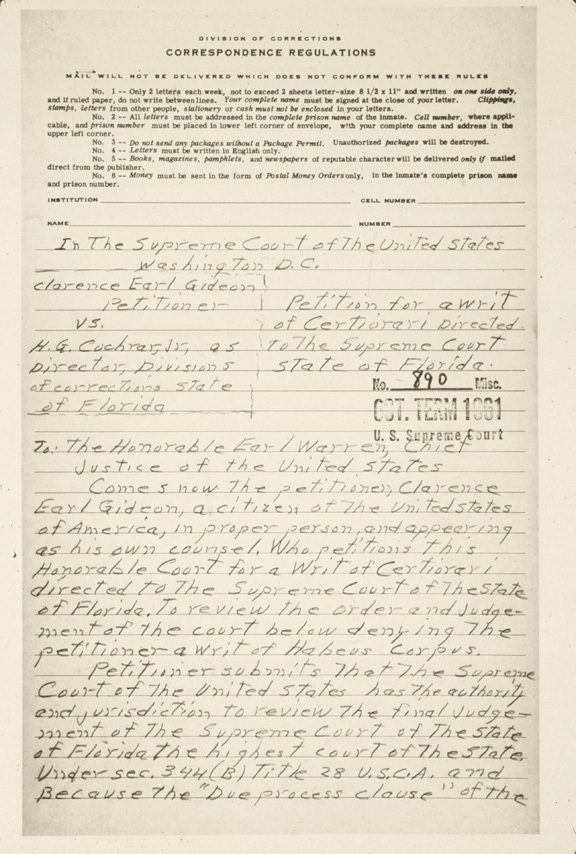 DIVISION OF CORRECTIONS
CORRESPONDENCE REGULATIONS
MAIL WILL NOT BE DELIVERED WHICH DOES NOT CONFORM WITH THESE RULES
No. 1 -- Only 2 letters each week, not to exceed 2 sheets letter-size 8 1/2 x 11" and written on one side only,
and if ruled paper, do not write between lines. Your complete name must be signed at the close of your letter. Clippings,
stamps, letters from other people, stationery or cash must not be enclosed in your letters.
No. 2 -- All letters must be addressed in the complete prison name of the inmate. Cell number, where appli-
cable, and prison number must be placed in lower left corner of envelope, with your complete name and address in the
upper left corner.
No. 3 -- Do not send any packages without a Package Permit. Unauthorized packages will be destroyed.
No. 4 -- Letters must be written in English only.
No. 5 -- Books, magazines, pamphlets, and newspapers of reputable character will be delivered only if mailed
direct from the publisher.
No. 6 -- Money must be sent in the form of Postal Money Orders only, in the inmate's complete prison name
and prison number.
INSTITUTION CELL NUMBER
NAME NUMBER
In The Supreme Court of The United States
Washington D.C.
Clarence Earl Gideon
Petitioner
vs.
H.G. Cochran, Jr., as
Director, Divisions
of corrections State
of Florida
Petition for a Writ
of Certiorari Directed
to The Supreme Court
State of Florida.
No. 890 Misc.
OCT. TERM 1961
U. S. Supreme Court
To: The Honorable Earl Warren, Chief
Justice of the United States
Comes now The petitioner, Clarence
Earl Gideon, a citizen of The United states
of America, in proper person, and appearing
as his own counsel. Who petitions this
Honorable Court for a Writ of Certiorari
directed to The Supreme Court of The State
of Florida. To review the order and Judge-
ment of the court below denying The
petitioner a writ of Habeus Corpus.
Petitioner submits That The Supreme
Court of The United States has The authority
and jurisdiction to review the final Judge-
ment of The Supreme Court of The State
of Florida the highest court of The State
Under sec. 344(B) Title 28 U.S.C.A. and
Because the "Due process clause" of the